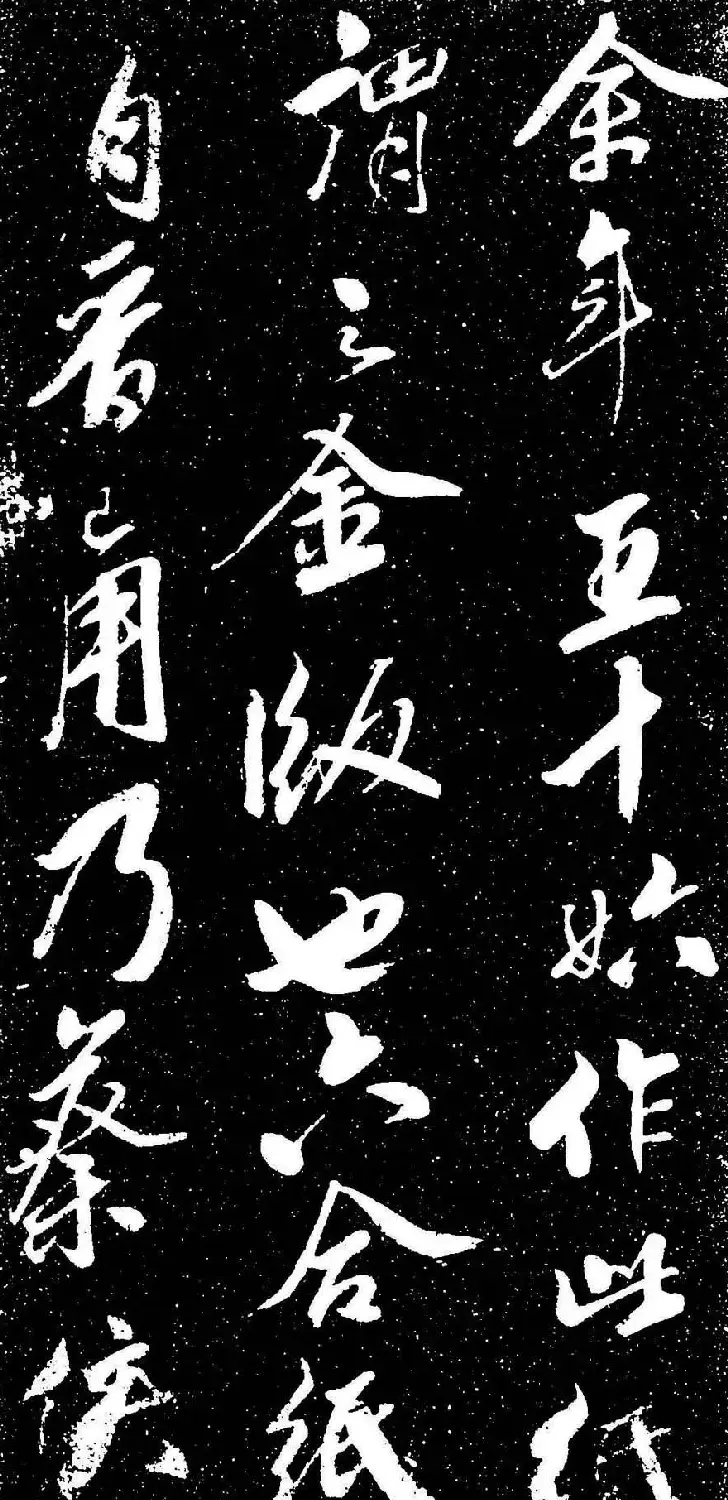 余年五十始作此紙
謂之金版也六合紙
自晉已用乃蔡侯